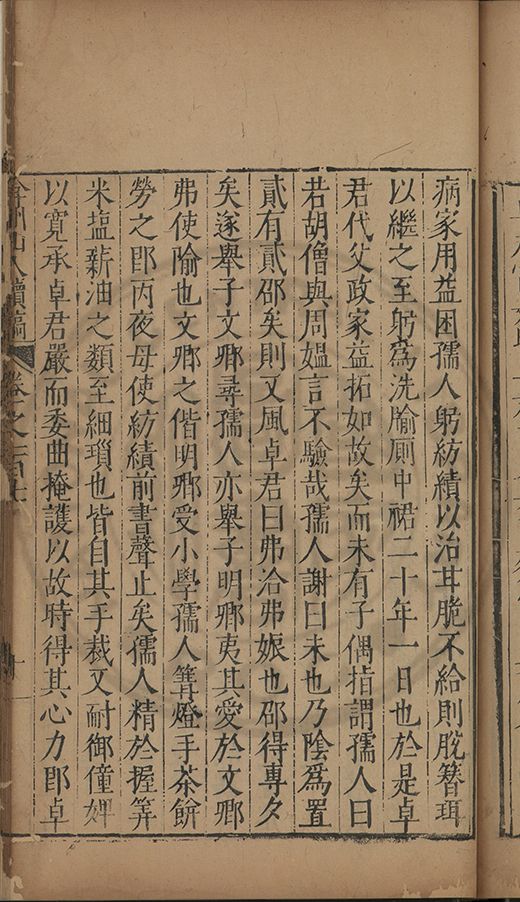 病家用益困孺人躬紡績以治甘脆不給則脫簪珥
以繼之至躬為洗腧厠中裙二十年一日也於是卓
君代父政家益拓如故矣而未有子偶指謂孺人曰
若胡僧與周媼言不驗哉孺人謝曰未也乃陰為置
貳有貳邵矣則又風卓君曰弗洽弗娠也邵得專夕
矣遂舉子文卿尋孺人亦舉子明卿夷其愛於文卿
弗使隃也文卿之偕明卿受小學孺人篝燈手茶餅
勞之即丙夜毋使紡績前書聲止矣孺人精於握筭
米塩薪油之類至細瑣也皆自其手裁又耐御僮婢
以寛承卓君嚴而委曲掩護以故時得其心力即卓
弇州山人續稿
卷之一百十